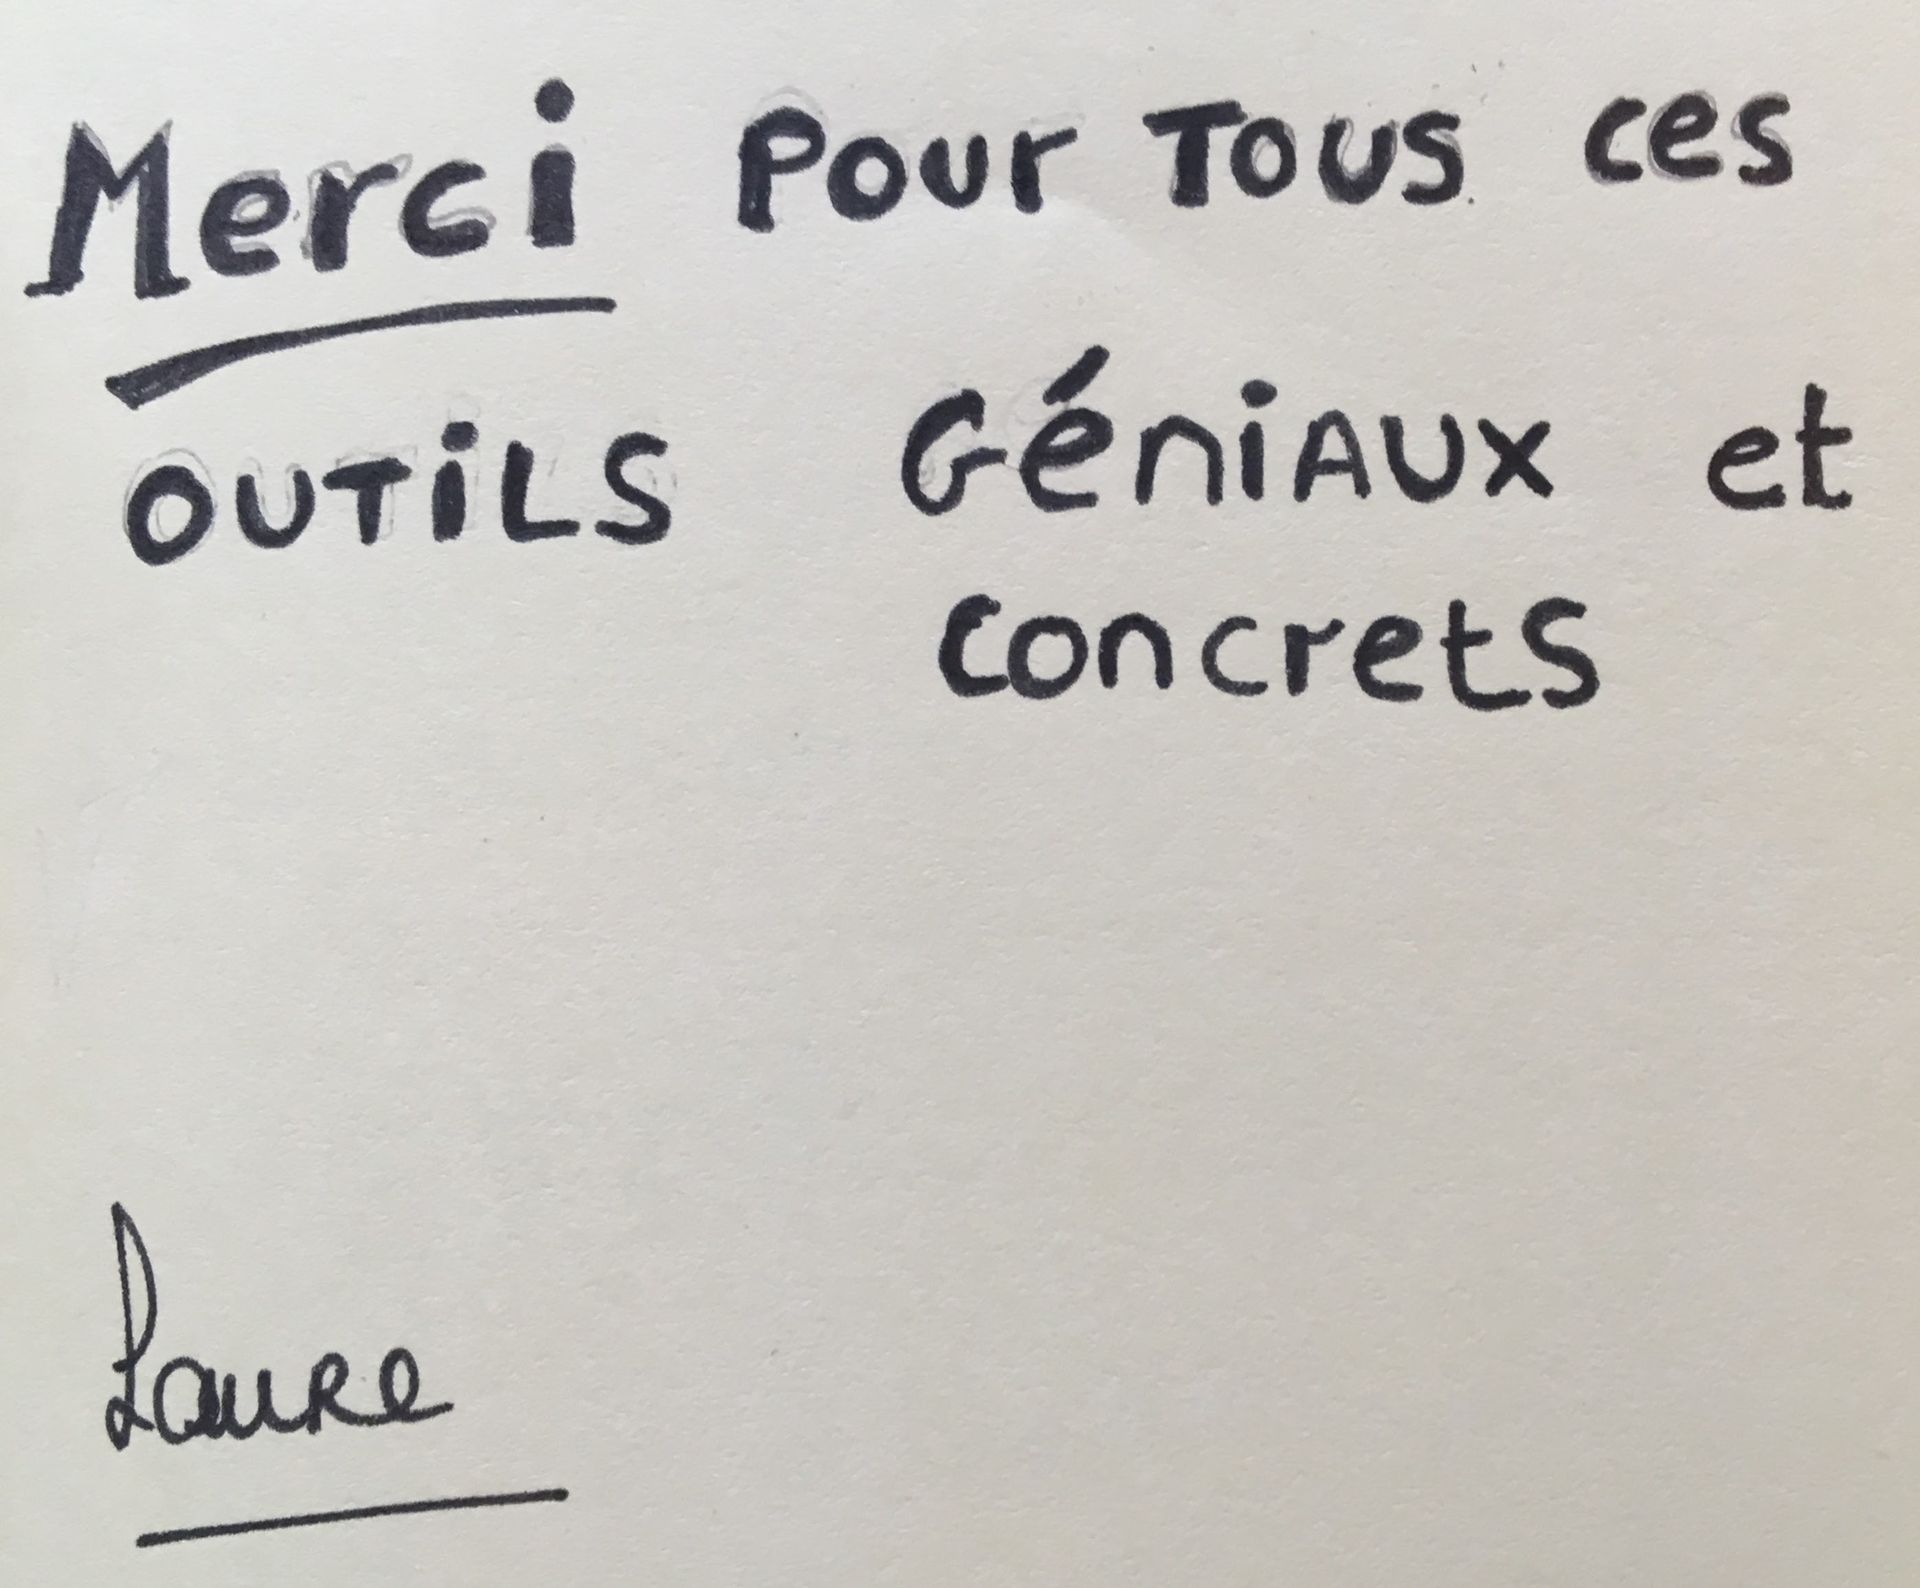 Merci Pour Tous ces
OUTiLS GéniAUX et
Concrets
Laure